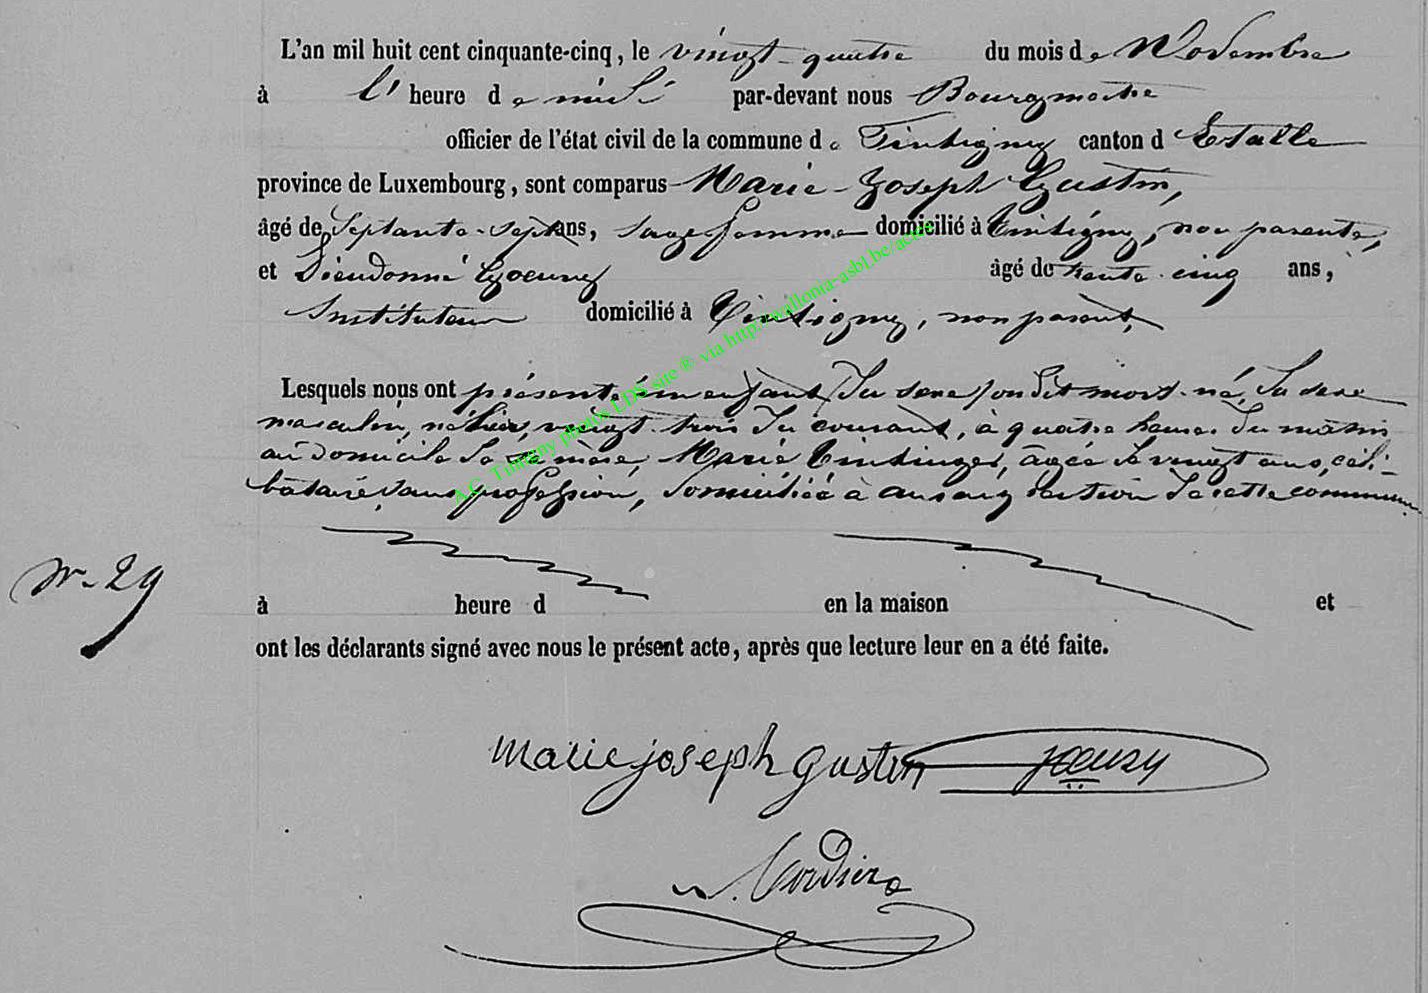 L'an mil huit cent cinquante-cinq, le vingt-quatre du mois de Novembre
à l'heure de midi par-devant nous Bourgmestre
officier de l'état civil de la commune de Tintigny canton d'Etalle
province de Luxembourg, sont comparus Marie-Joseph Gustin,
âgé de Septante-sept ans, sage femme domicilié à Tintigny, non parente,
et Dieudonné Goeury âgé de trente-cinq ans,
Instituteur domicilié à Tintigny, non parent,
Lesquels nous ont présenté un enfant du sexe / on dit mort-né, du sexe
masculin, né hier, vingt-trois du courant, à quatre heures du matin
au domicile de sa mère, Marie Tintinger, âgée de vingt ans, céli-
bataire, sans profession, domiciliée à ansart section de cette commune.
Nr. 29
à heure d en la maison et
ont les déclarants signé avec nous le présent acte, après que lecture leur en a été faite.
Marie joseph gustin goeury
Cordier
A.C. Tintigny photos LDS site ® via http://wallonia-asbl.be/actes